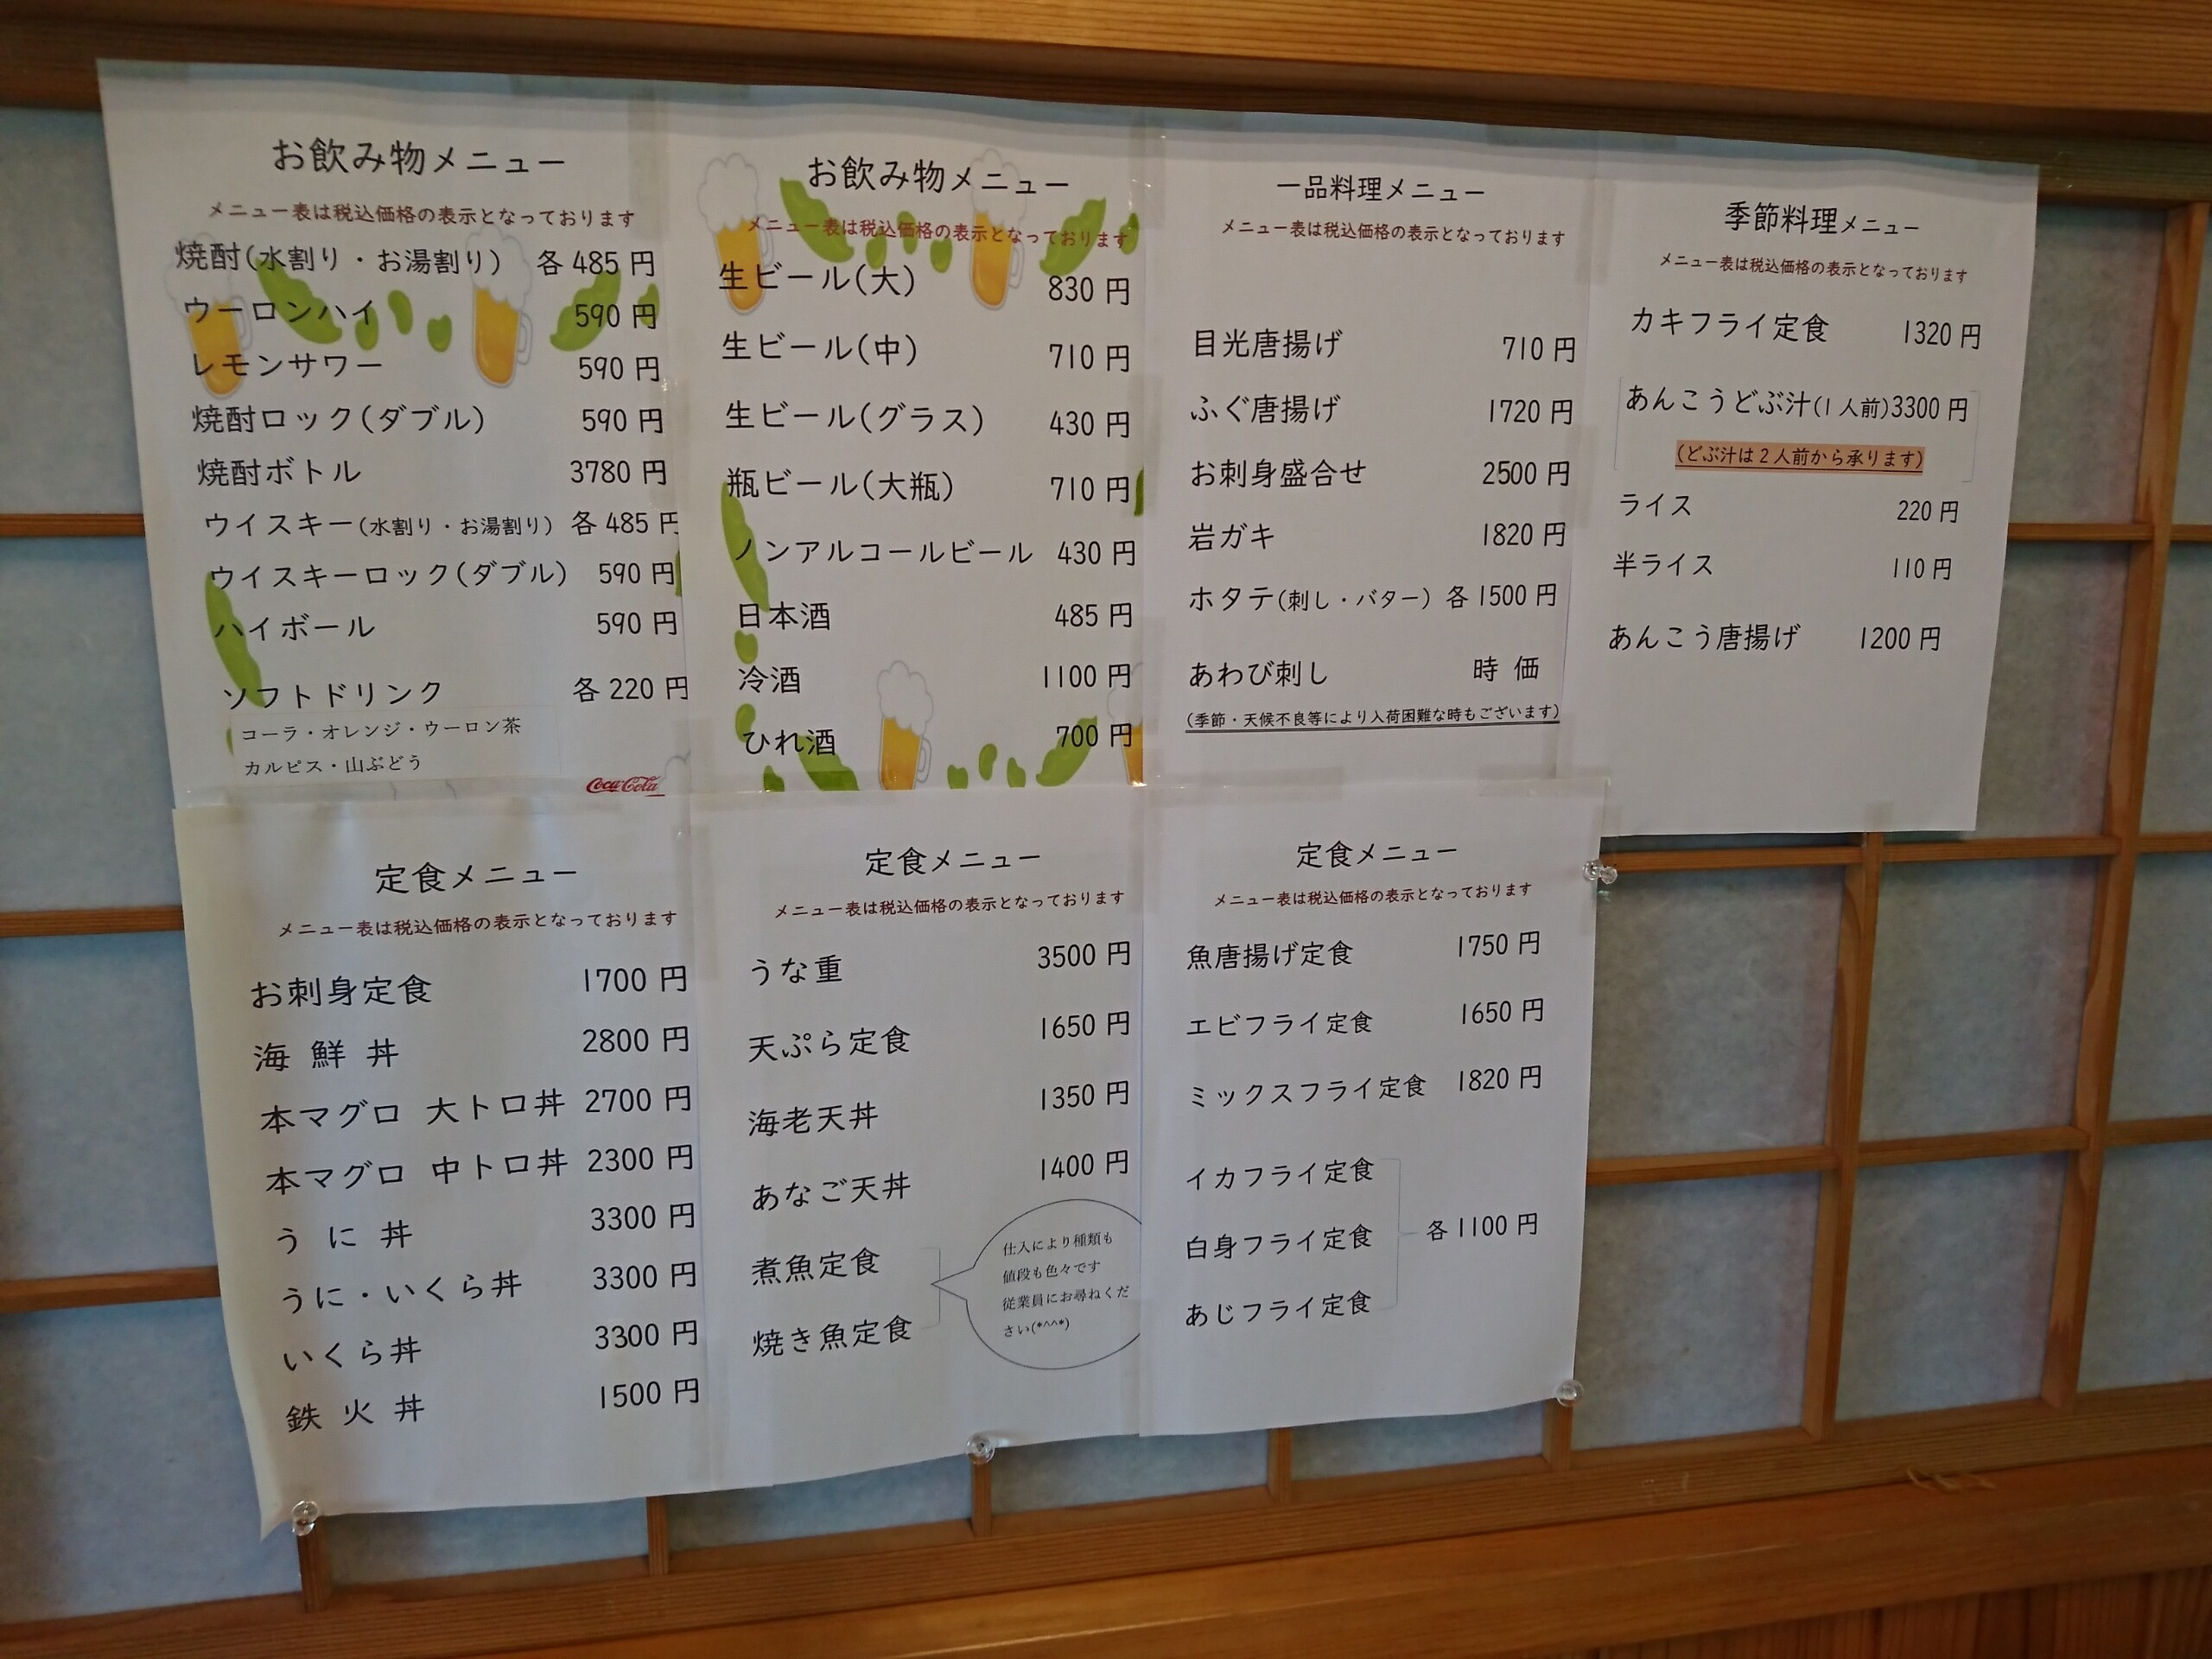 お飲み物メニュー
メニュー表は税込価格の表示となっております
焼酎(水割り・お湯割り) 各 485 円
ウーロンハイ 590 円
レモンサワー 590 円
焼酎ロック(ダブル) 590 円
焼酎ボトル 3780 円
ウイスキー(水割り・お湯割り) 各 485 円
ウイスキーロック(ダブル) 590 円
ハイボール 590 円
ソフトドリンク 各 220 円
コーラ・オレンジ・ウーロン茶
カルピス・山ぶどう
Coca-Cola
お飲み物メニュー
メニュー表は税込価格の表示となっております
生ビール(大) 830 円
生ビール(中) 710 円
生ビール(グラス) 430 円
瓶ビール(大瓶) 710 円
ノンアルコールビール 430 円
日本酒 485 円
冷酒 1100 円
ひれ酒 700 円
一品料理メニュー
メニュー表は税込価格の表示となっております
目光唐揚げ 710 円
ふぐ唐揚げ 1720 円
お刺身盛合せ 2500 円
岩ガキ 1820 円
ホタテ(刺し・バター) 各 1500 円
あわび刺し 時 価
(季節・天候不良等により入荷困難な時もございます)
季節料理メニュー
メニュー表は税込価格の表示となっております
カキフライ定食 1320 円
あんこうどぶ汁(1 人前)3300 円
(どぶ汁は 2 人前から承ります)
ライス 220 円
半ライス 110 円
あんこう唐揚げ 1200 円
定食メニュー
メニュー表は税込価格の表示となっております
お刺身定食 1700 円
海 鮮 丼 2800 円
本マグロ 大トロ丼 2700 円
本マグロ 中トロ丼 2300 円
う に 丼 3300 円
うに・いくら丼 3300 円
いくら丼 3300 円
鉄 火 丼 1500 円
定食メニュー
メニュー表は税込価格の表示となっております
うな重 3500 円
天ぷら定食 1650 円
海老天丼 1350 円
あなご天丼 1400 円
煮魚定食
焼き魚定食
仕入により種類も
値段も色々です
従業員にお尋ねくだ
さい(*^^*)
定食メニュー
メニュー表は税込価格の表示となっております
魚唐揚げ定食 1750 円
エビフライ定食 1650 円
ミックスフライ定食 1820 円
イカフライ定食
白身フライ定食 各 1100 円
あじフライ定食